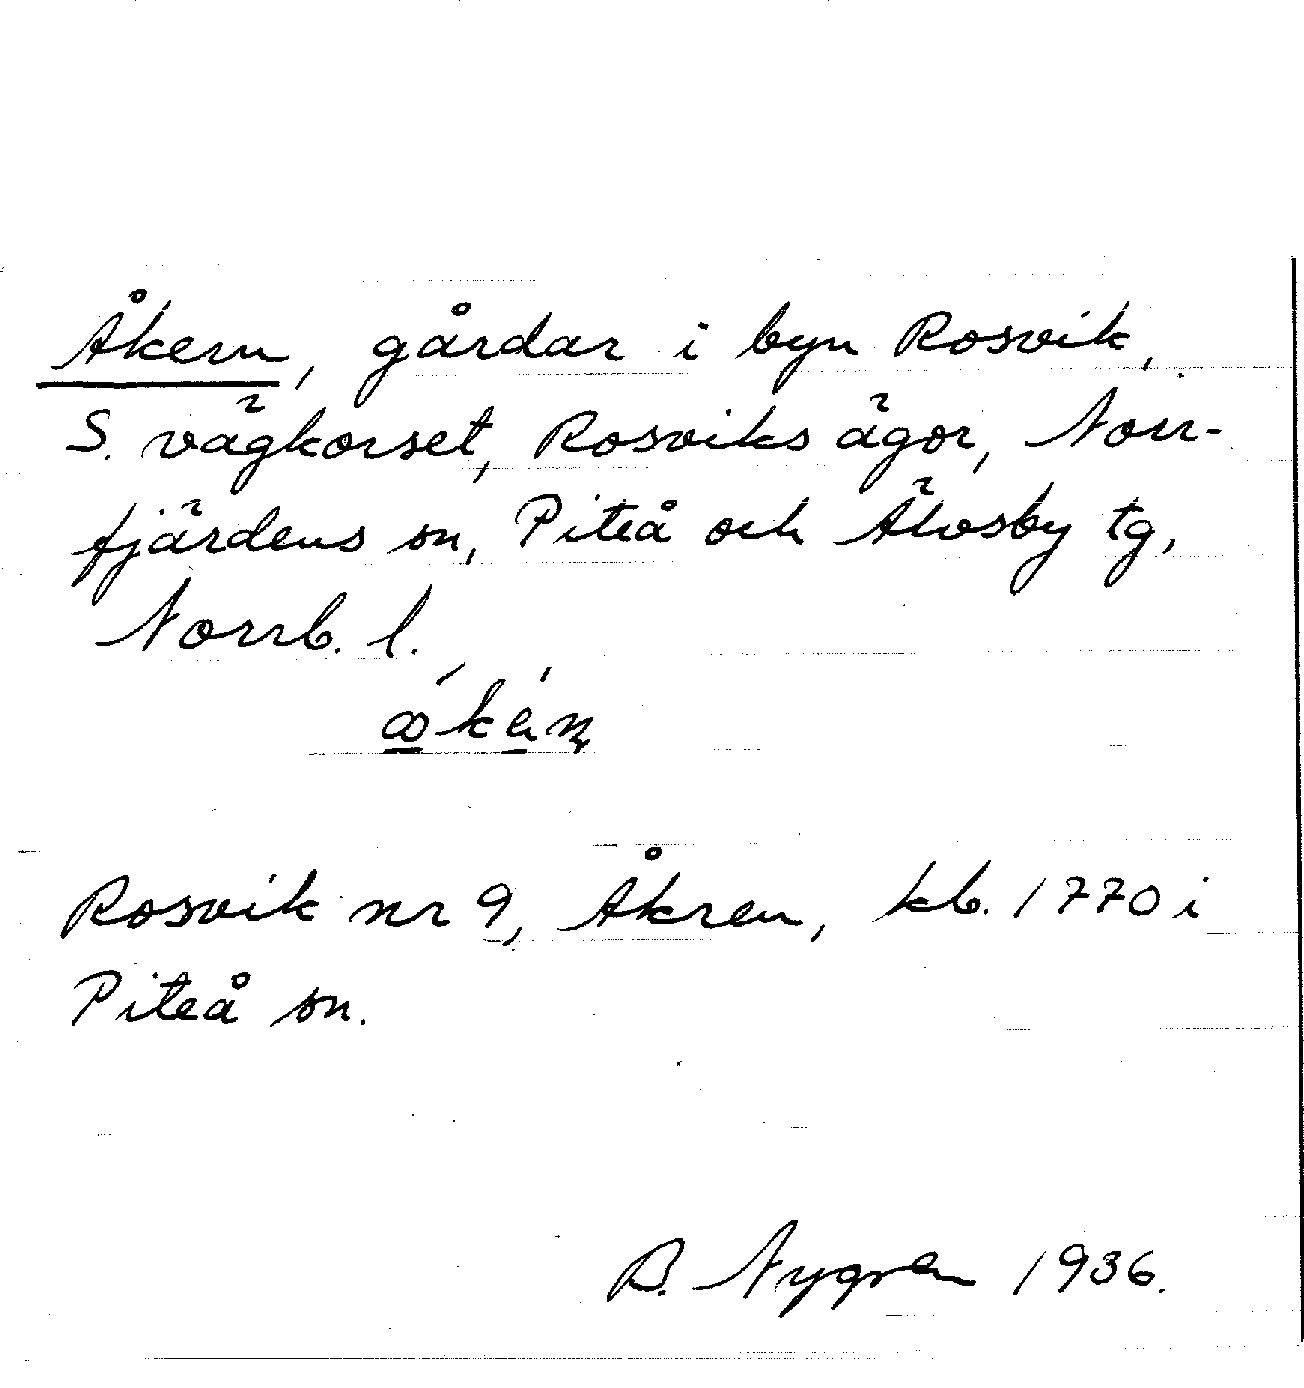 Åkern, gårdar i byn Rosvik,
S. vägkorset, Rosviks ägor, Norr-
fjärdens sn, Piteå och Älvsby tg,
Norrb. l.
Rosvik nr 9, Åkren, kb. 1770 i
Piteå sn.
B. Nygren 1936.